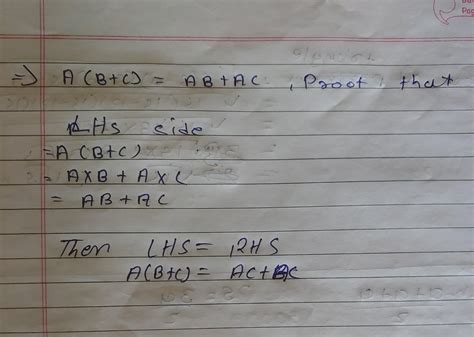 => A (B+C) = AB + AC , Proof that
LHS side
= A (B+C)
= A×B + A×C
= AB + AC
Then LHS = RHS
A(B+C) = AC+